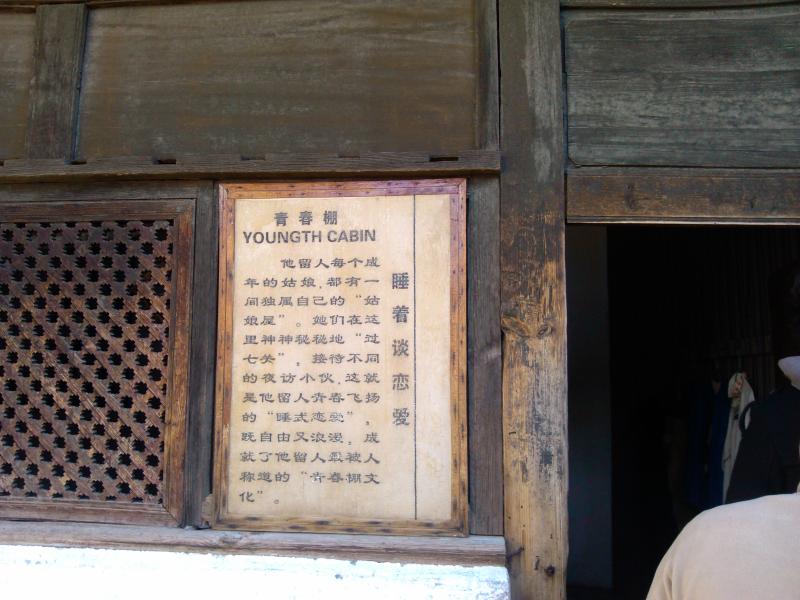 青春棚
YOUNGTH CABIN
他留人每个成
年的姑娘,都有一
间独属自己的“姑
娘屋”。她们在这
里神神秘秘地“过
七关”,接待不同
的夜访小伙,这就
是他留人青春飞扬
的“睡式恋爱”,
既自由又浪漫,成
就了他留人最被人
称道的“青春棚文
化”。
睡着谈恋爱